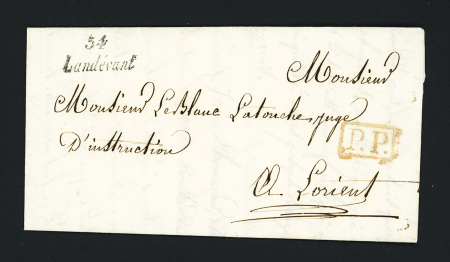 54
Landévant
Monsieur
Monsieur LeBlanc Latouche, juge
D'instruction
P.P.
A Lorient